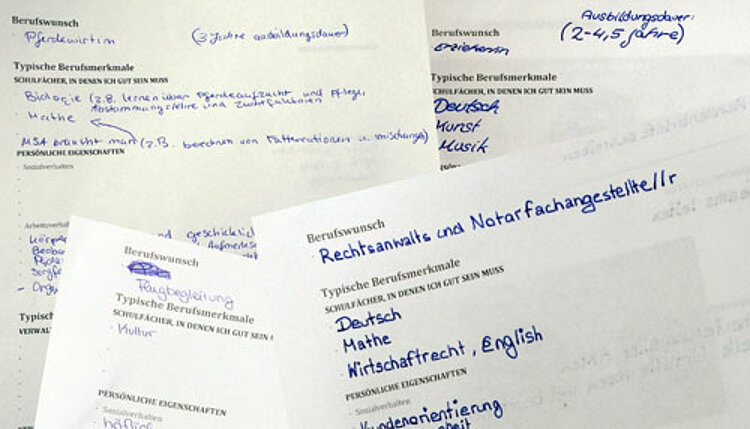 Berufswunsch
Pferdewirtin (3 Jahre ausbildungsdauer)
Typische Berufsmerkmale
SCHULFÄCHER, IN DENEN ICH GUT SEIN MUSS
Biologie (z.B. lernen über Pferdeaufzucht und Pflege,
Abstammungslehre und Zuchtfaktoren
Mathe
MSA braucht man (z.B. berechnen von Futterrationen u. mischungen)
PERSÖNLICHE EIGENSCHAFTEN
Sozialverhalten
Arbeitsverhal
nd geschicklich
Aufmerks
Typisc
VERWAL
Ausbildungsdauer:
(2-4,5 Jahre)
Berufswunsch
Erzieherin
Typische Berufsmerkmale
SCHULFÄCHER, IN DENEN ICH GUT SEIN MUSS
Deutsch
Kunst
Musik
Berufswunsch
Flugbegleitung
Typische Berufsmerkmale
SCHULFÄCHER, IN DENEN ICH GUT SEIN
Kultur
PERSÖNLICHE EIGENSCHAFTEN
Sozialverhalten
höflich
Berufswunsch
Rechtsanwalts und Notarfachangestellte/r
Typische Berufsmerkmale
SCHULFÄCHER, IN DENEN ICH GUT SEIN MUSS
Deutsch
Mathe
Wirtschaftrecht, English
PERSÖNLICHE EIGENSCHAFTEN
Sozialverhalten
Kundenorientierung